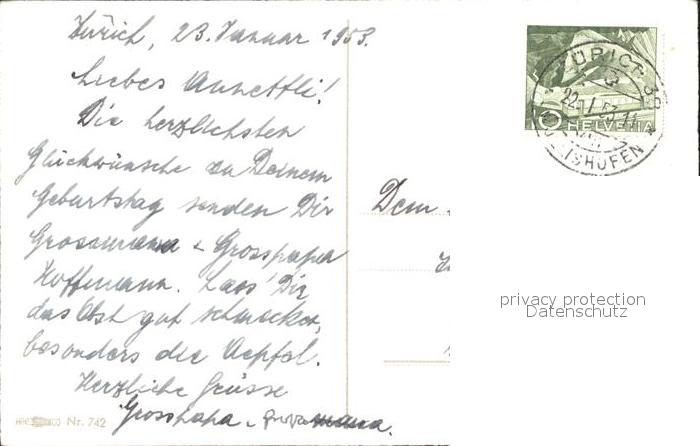 Zürich, 23. Januar 1953.
Liebes Annettli!
Die herzlichsten
Glückwünsche zu Deinem
Geburtstag senden Dir
Grossmama & Grosspapa
Hoffmann. Lass' Dir
das Obst gut schmecken,
besonders die Aepfel.
Herzliche Grüsse
Grosspapa & Grossmama.
Dem
Nr. 742
ZÜRICH 38
22. I. 53-11
WOLLISHOFEN
10 HELVETIA
privacy protection
Datenschutz